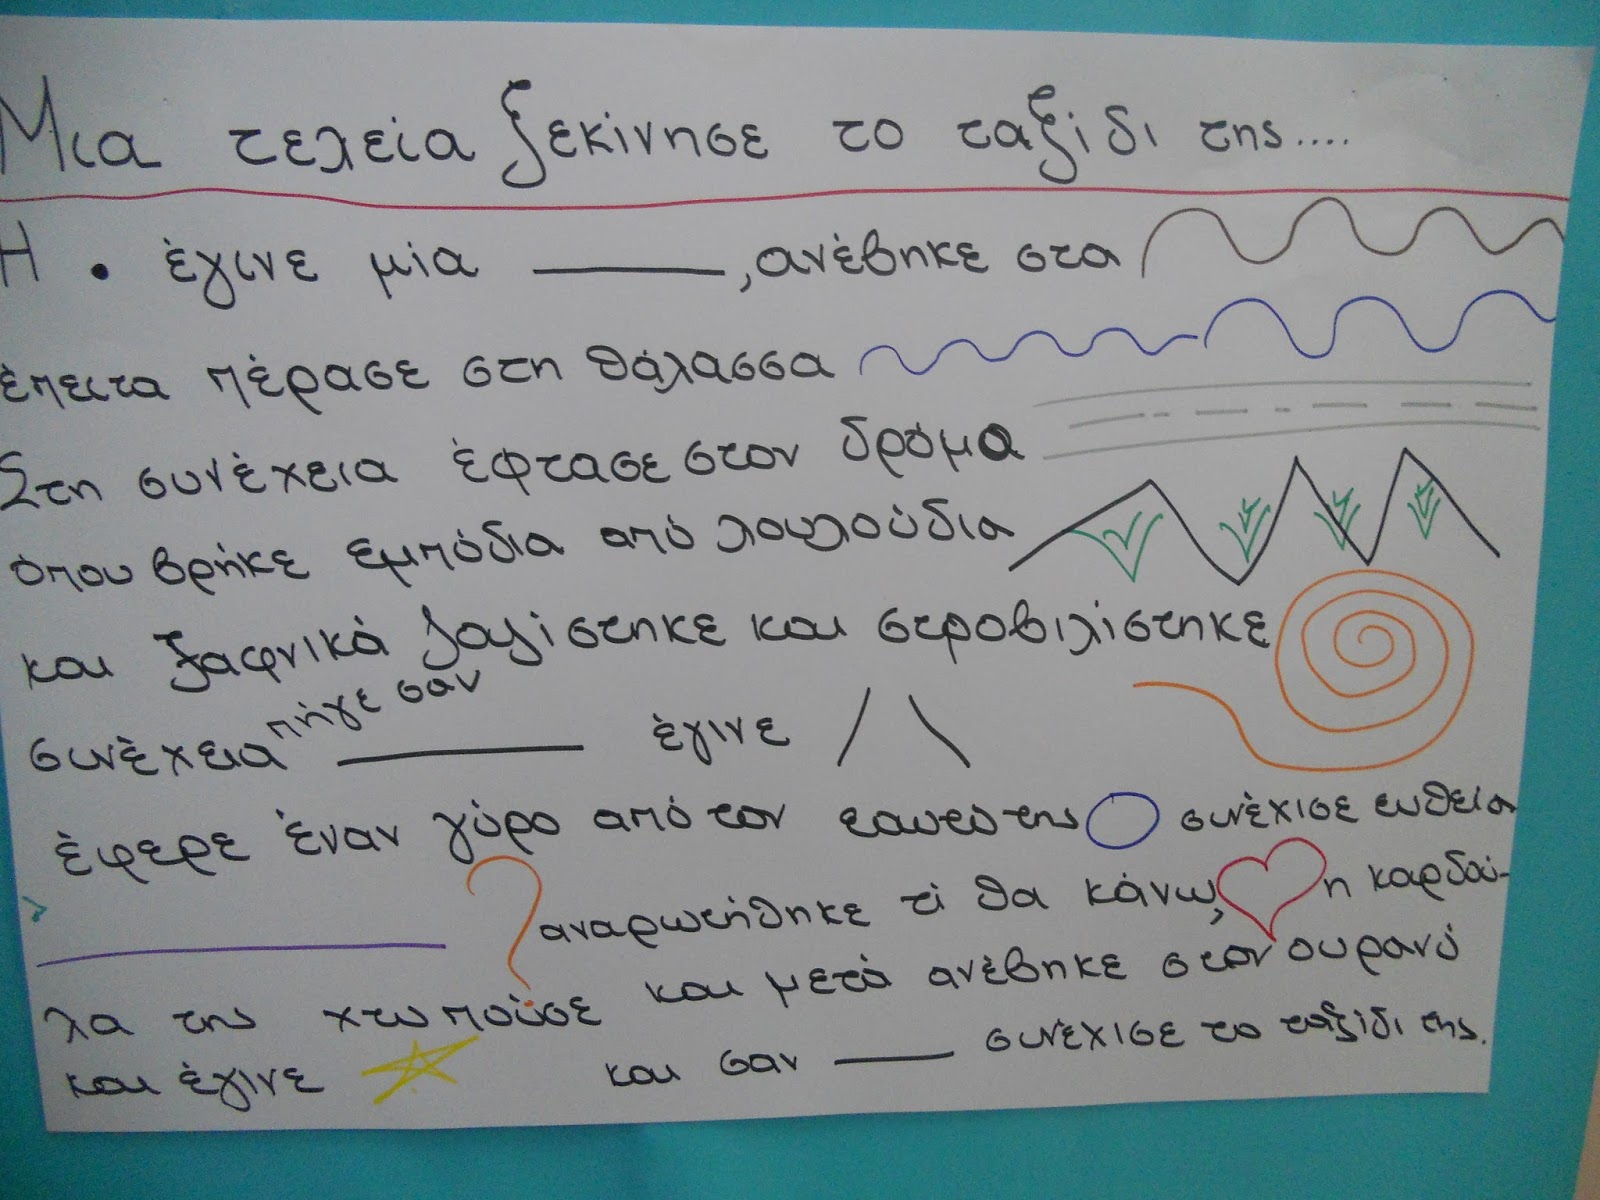 Μια τελεία ξεκίνησε το ταξίδι της....
Η . έγινε μία ———, ανέβηκε στα
έπειτα πέρασε στη θάλασσα
Στη συνέχεια έφτασε στον δρόμο
όπου βρήκε εμπόδια από λουλούδια
και ξαφνικά ζαλίστηκε και στροβιλίστηκε
συνέχεια πήγε σαν ——— έγινε / \
έφερε έναν γύρο από τον εαυτό της συνέχισε ευθεία
αναρωτήθηκε τί θα κάνω, η καρδού-
λα της χτυπούσε και μετά ανέβηκε στον ουρανό
και έγινε και σαν —— συνέχισε το ταξίδι της.